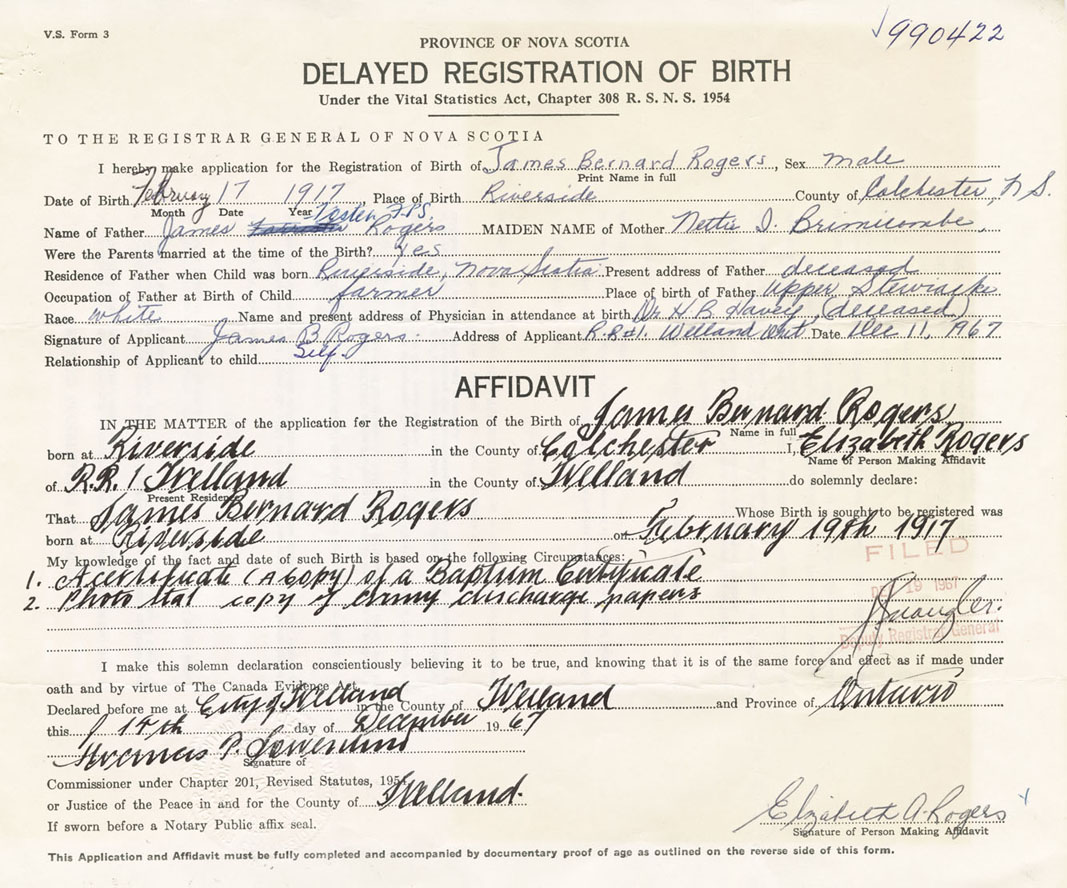 V.S. Form 3
990422
PROVINCE OF NOVA SCOTIA
DELAYED REGISTRATION OF BIRTH
Under the Vital Statistics Act, Chapter 308 R. S. N. S. 1954
TO THE REGISTRAR GENERAL OF NOVA SCOTIA
I hereby make application for the Registration of Birth of James Bernard Rogers, Sex male
Print Name in full
Date of Birth February 17 1917 Place of Birth Riverside County of Colchester, N S.
Month Date Year
Name of Father James Foster Rogers MAIDEN NAME of Mother Nettie I. Brimicombe,
Were the Parents married at the time of the Birth? Yes
Residence of Father when Child was born Riverside, Nova Scotia. Present address of Father deceased
Occupation of Father at Birth of Child farmer Place of birth of Father Upper Stewiacke
Race white Name and present address of Physician in attendance at birth Dr. H B Havey (deceased)
Signature of Applicant James B Rogers. Address of Applicant R.R#1. Welland Ont Date Dec 11, 1967
Relationship of Applicant to child Self
AFFIDAVIT
IN THE MATTER of the application for the Registration of the Birth of James Bernard Rogers
Name in full
born at Riverside in the County of Colchester I, Elizabeth Rogers
Name of Person Making Affidavit
of R.R. 1 Welland in the County of Welland do solemnly declare:
Present Residence
That James Bernard Rogers Whose Birth is sought to be registered was
born at Riverside on February 19th 1917
My knowledge of the fact and date of such Birth is based on the following Circumstances:
1. A certificate (A Copy) of a Baptism Certificate
2. Photo stat copy of army discharge papers
FILED
DEC 19 1967
Deputy Registrar General
I make this solemn declaration conscientiously believing it to be true, and knowing that it is of the same force and effect as if made under
oath and by virtue of The Canada Evidence Act.
Declared before me at City of Welland in the County of Welland and Province of Ontario
this 14th day of December 1967
Signature of
Commissioner under Chapter 201, Revised Statutes, 1954
or Justice of the Peace in and for the County of Welland.
If sworn before a Notary Public affix seal.
Elizabeth A. Rogers
Signature of Person Making Affidavit
This Application and Affidavit must be fully completed and accompanied by documentary proof of age as outlined on the reverse side of this form.